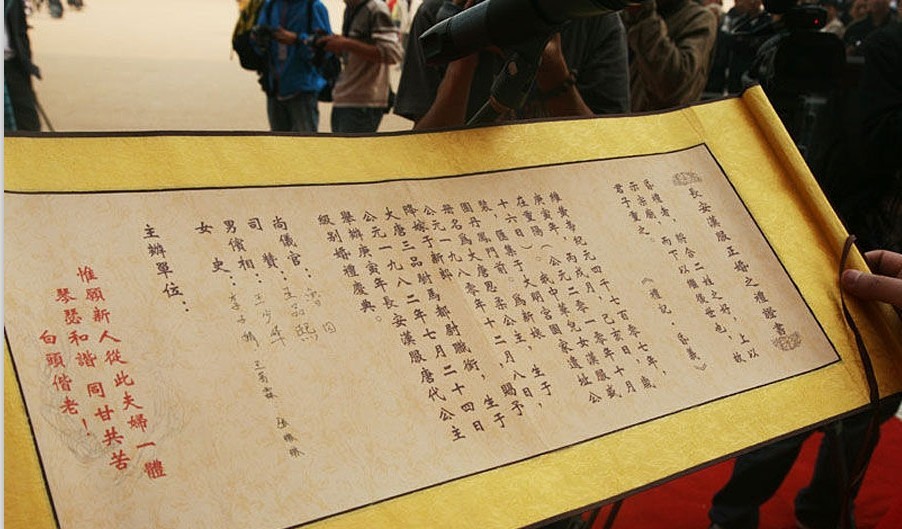 長安漢服正婚之禮證書
昏禮者，將合二姓之好，上以
示宗廟，而下以繼後世也，故
君子重之。 《禮記，昏義》
維黃帝紀元四千七百零七年，歲
庚寅年，丙戌月，乙亥日，
在重陽。（公元二零一零年十月
十六日），我中華兒女漢服盛
裝，匯集于大明宮國家遺址公
園丹鳳門前。爲新娘 生于
公元一九八 年十二月八日，賜予
册名爲大唐思柔公主，
降嫁于新郎 生于
公元一九八二年七月二十四日
大唐三品駙馬都尉職銜，
舉辦庚寅年長安漢服唐代公主
級别婚禮慶典。
尚儀官：
司 贊：
男儐相：
女 史：
主辦單位：
惟願新人從此夫婦一體
琴瑟和諧 同甘共苦
白頭偕老！